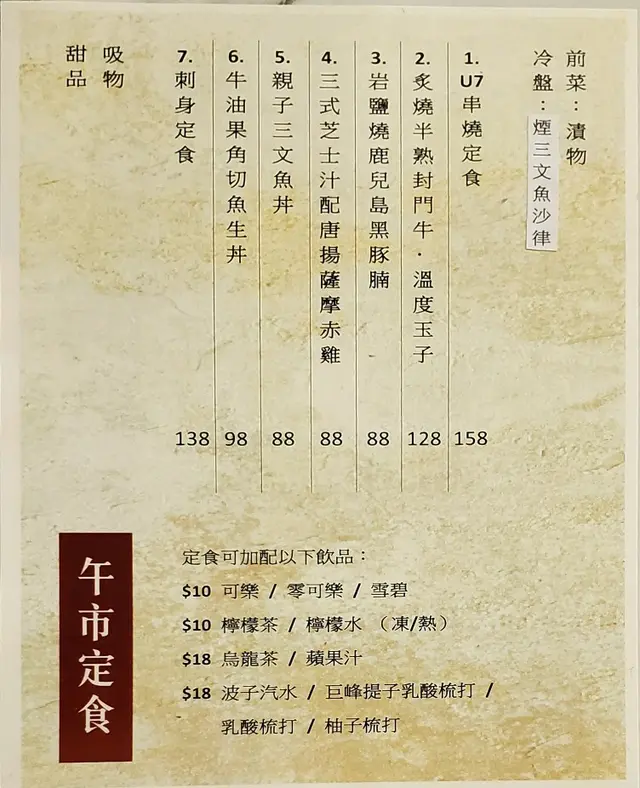 前菜：漬物
冷盤：煙三文魚沙律
1. U7串燒定食 158
2. 炙燒半熟封門牛．溫度玉子 128
3. 岩鹽燒鹿兒島黑豚腩 88
4. 三式芝士汁配唐揚薩摩赤雞 88
5. 親子三文魚丼 88
6. 牛油果角切魚生丼 98
7. 刺身定食 138
吸物
甜品
午市定食
定食可加配以下飲品：
$10 可樂 / 零可樂 / 雪碧
$10 檸檬茶 / 檸檬水 （凍/熱）
$18 烏龍茶 / 蘋果汁
$18 波子汽水 / 巨峰提子乳酸梳打 /
乳酸梳打 / 柚子梳打